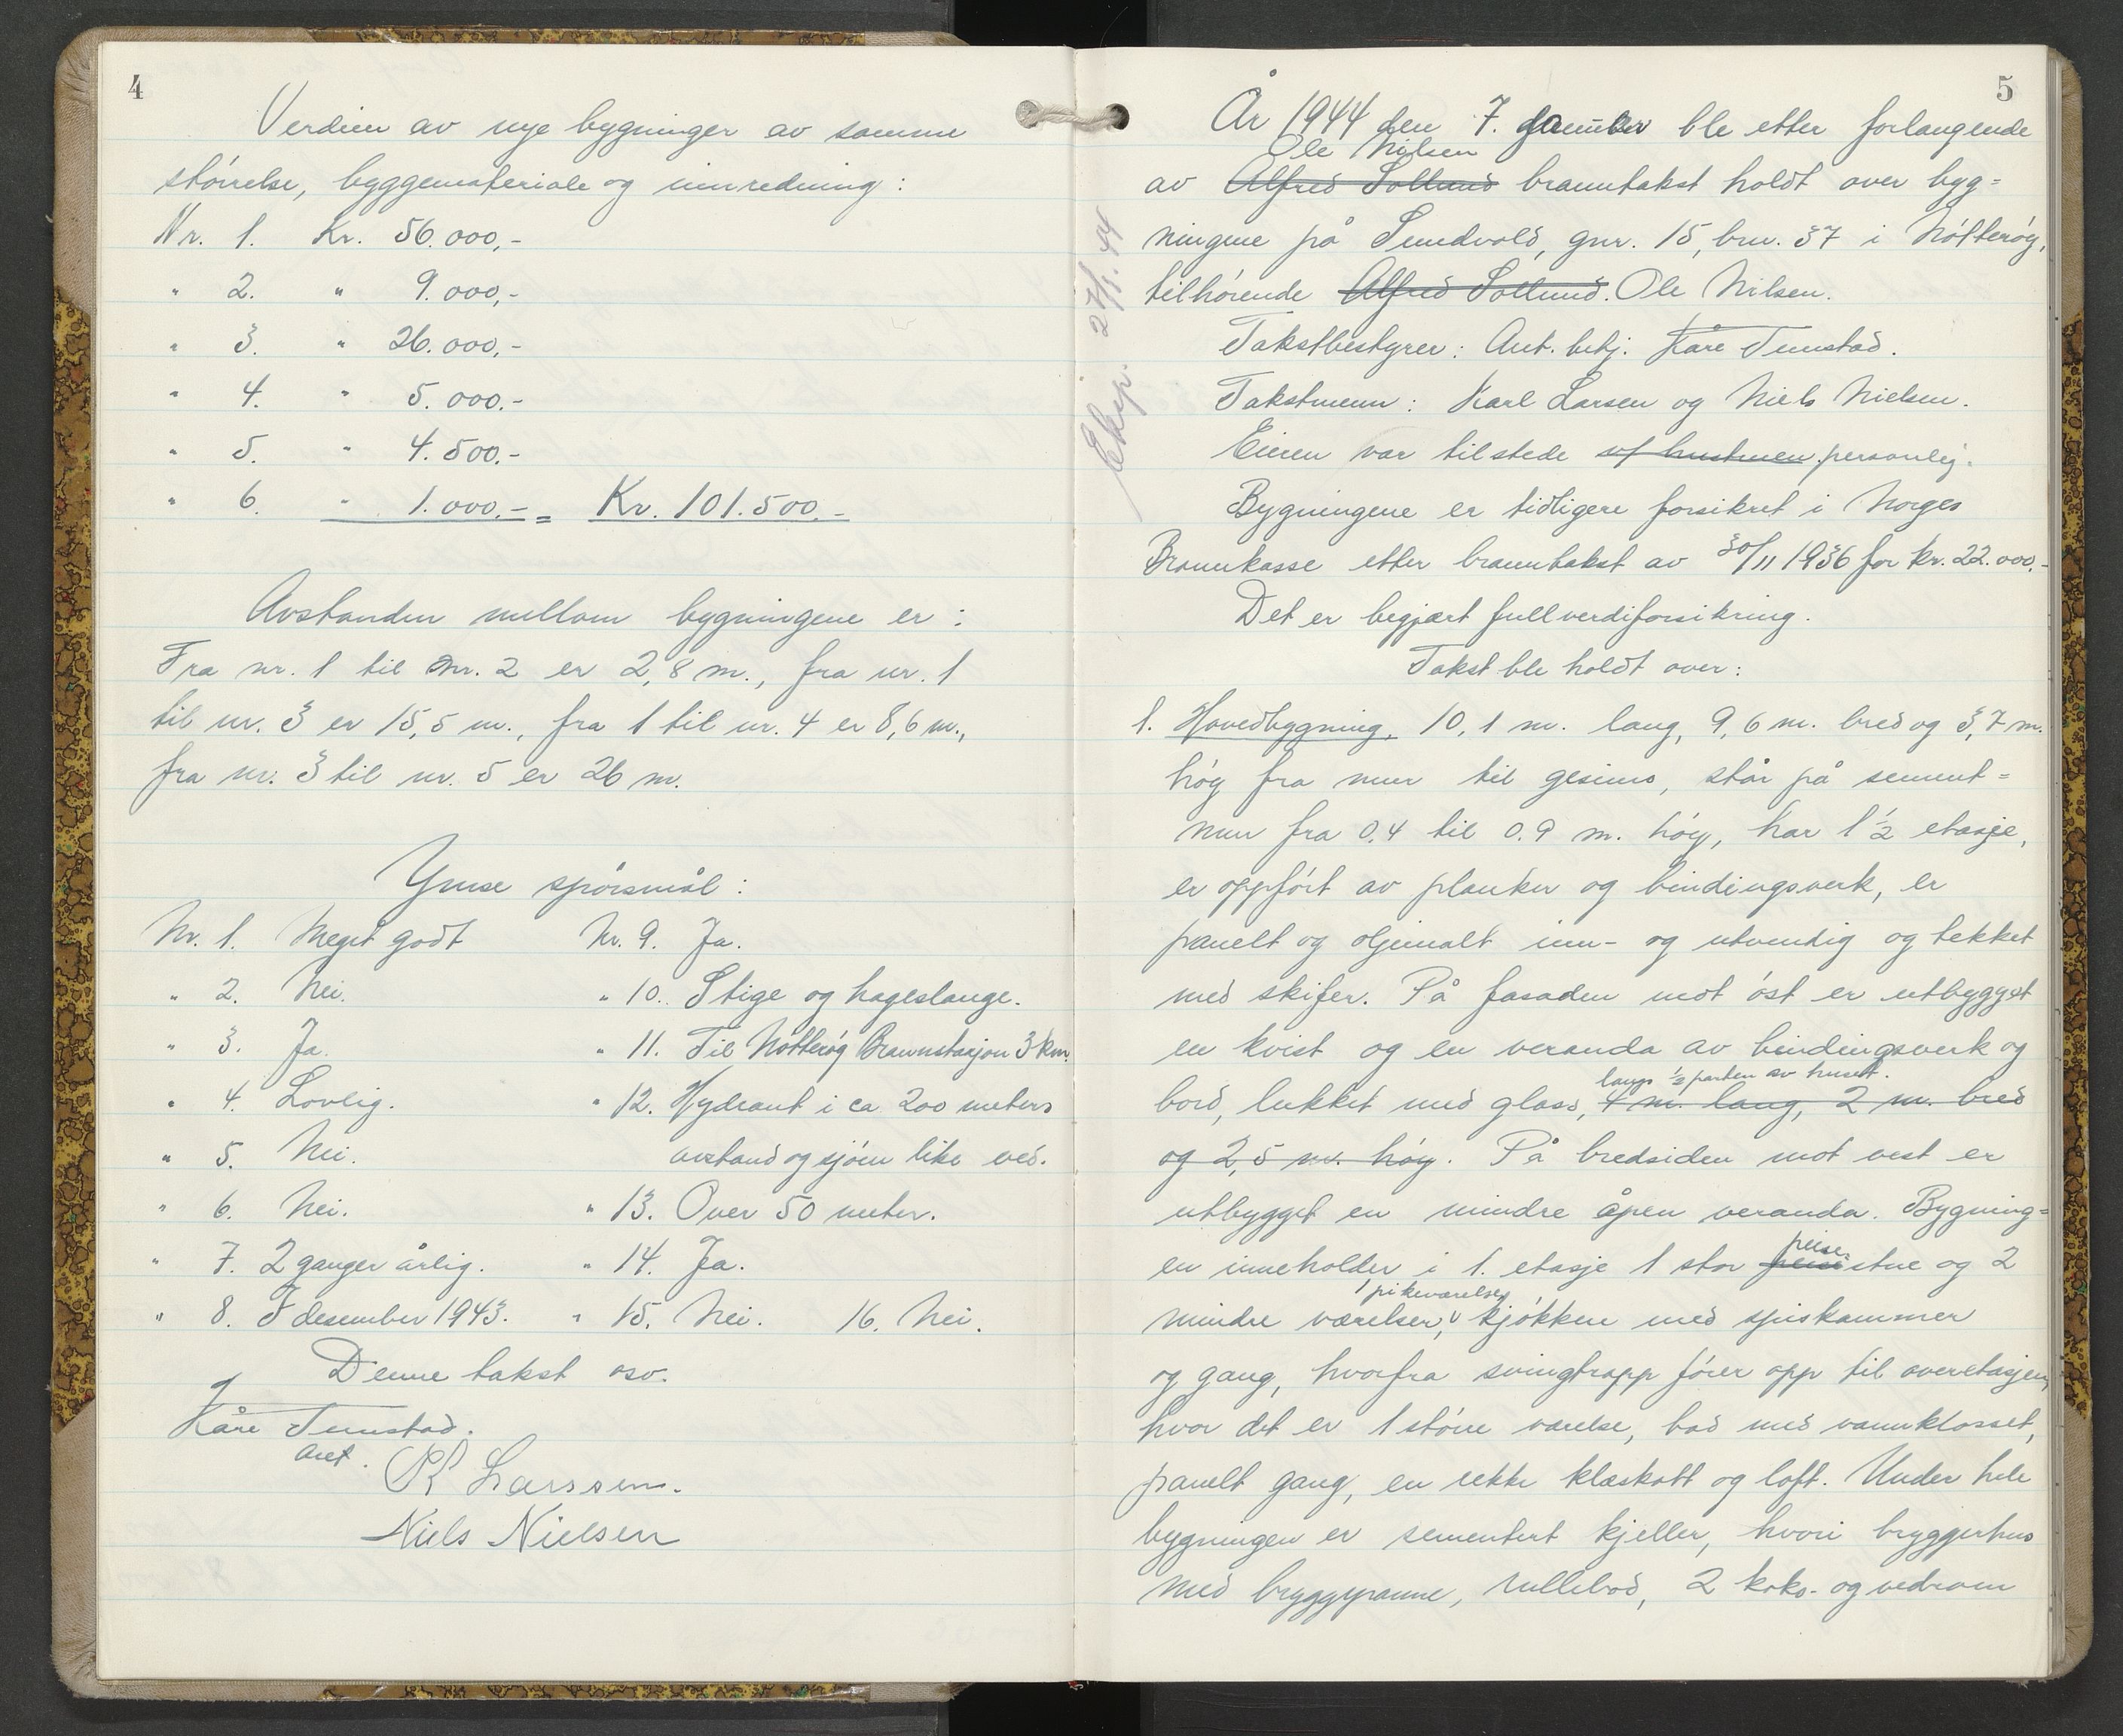 4
Verdien av nye bygninger av samme
störrelse, byggemateriale og innredning:
Nr. 1. Kr. 56.000,-
" 2. " 9.000,-
" 3. " 26.000,-
" 4. " 5.000.-
" 5. " 4.500.-
" 6. " 1.000.- = Kr. 101.500.-
Avstanden mellom bygningene er:
Fra nr. 1 til nr. 2 er 2,8 m., fra nr. 1
til nr. 3 er 15,5 m., fra 1 til nr. 4 er 8,6 m.,
fra nr. 3 til nr. 5 er 26 m.
Ymse spörsmål:
Nr. 1. Meget godt Nr. 9. Ja.
" 2. Nei. " 10. Stige og hageslange.
" 3. Ja. " 11. Til Nötteröy Brannstasjon 3 km.
" 4. Lovlig. " 12. Hydrant i ca 200 meters
" 5. Nei. avstand og sjöen like ved.
" 6. Nei. " 13. Over 50 meter.
" 7. 2 ganger årlig. " 14. Ja.
" 8. I desember 1943. " 15. Nei. 16. Nei.
Denne takst osv.
Kåre Tunstad.
aut. K Larssen.
Niels Nielsen
5
År 1944 den 7. januar ble etter forlangende
Ole Nilsen
av Alfred Sollund branntakst holdt over byg=
ningene på Sundvold, gnr. 15, bnr. 37 i Nötteröy,
tilhörende Alfred Sollund. Ole Nilsen.
Takstbestyrer: Aut. betj. Kåre Tunstad.
Takstmenn: Karl Larsen og Niels Nielsen.
Eieren var tilstede v/ hustruen personlig.
Bygningene er tidligere forsikret i Norges
Brannkasse etter branntakst av 30/11 1936 for kr. 22.000.-
Det er begjært fullverdiforsikring.
Takst ble holdt over:
1. Hovedbygning, 10,1 m. lang, 9,6 m. bred og 3,7 m.
höy fra mur til gesims, står på sement=
mur fra 0.4 til 0.9 m. höy, har 1½ etasje,
er oppfört av planker og bindingsverk, er
panelt og oljemalt inn- og utvendig og tekket
med skifer. På fasaden mot öst er utbygget
en kvist og en veranda av bindingsverk og
langs ½ parten av huset.
bord, lukket med glass, 4 m. lang, 2 m. bred
og 2,5 m. höy. På bredsiden mot vest er
utbygget en mindre åpen veranda. Bygning=
peise
en inneholder i 1. etasje 1 stor stue og 2
1 pikeværelse,
mindre værelser, kjökken med spiskammer
og gang, hvorfra svingtrapp förer opp til overetasjen,
hvor det er 1 större værelse, bad med vannklosset,
panelt gang, en rekke klæskott og loft. Under hele
bygningen er sementert kjeller, hvori bryggerhus
med bryggepanne, rullebod, 2 koks- og vedrom
Eksp. 27/1. 44